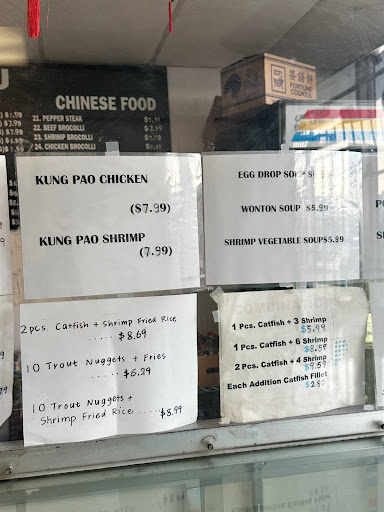 茶語餅
FORTUNE
COOKIES
CHINESE FOOD
21. PEPPER STEAK
22. BEEF BROCOLLI
23. SHRIMP BROCOLLI
24. CHICKEN BROCOLLI
KUNG PAO CHICKEN
($7.99)
KUNG PAO SHRIMP
(7.99)
EGG DROP SOUP
WONTON SOUP $5.99
SHRIMP VEGETABLE SOUP$5.99
2 pcs. Catfish + Shrimp Fried Rice
..... $8.69
10 Trout Nuggets + Fries
..... $6.39
10 Trout Nuggets +
Shrimp Fried Rice .....$8.99
1 Pcs. Catfish + 3 Shrimp
$5.99
1 Pcs. Catfish + 6 Shrimp
$8.59
2 Pcs. Catfish + 4 Shrimp
$9.59
Each Addition Catfish Fillet
$2.80